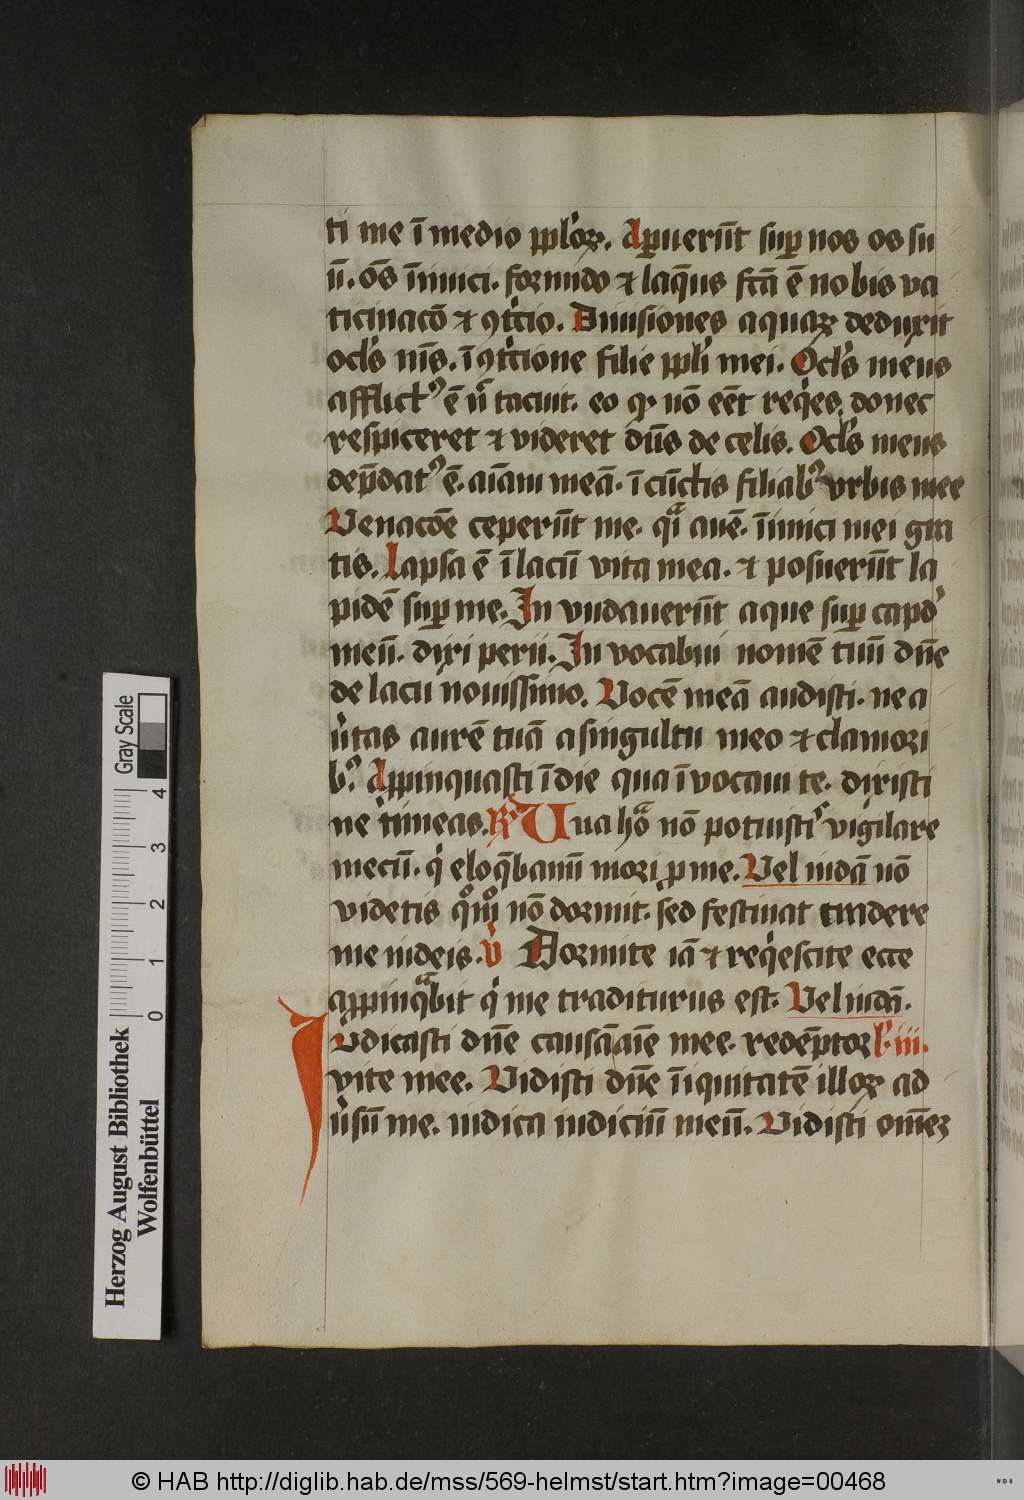 ti me ī medio pplōꝝ. Aꝑuerūt suꝑ nos os su
ū. oēs īimici. formido ⁊ laq̄us fcā ē nobis va
ticinacō ⁊ ꝯtͥcio. Diuisiones aquaꝝ deduxit
oclꝰs nīs. ī ꝯtͥcione filie ppli mei. Oclꝰs meus
afflictꝰ ē n̄ tacuit. eo ꝙ nō eēt reqͥes. donec
respiceret ⁊ videret dn̄s de celis. Oclꝰs meus
dep̄datꝰ ē. aīam meā. ī cūctis filiabꝰ vrbis mee
Venacōe ceperūt me. qͣi auē. īimici mei gra
tis. Lapsa ē ī lacū vita mea. ⁊ posuerūt la
pidē suꝑ me. In vndauerūt aque suꝑ capd̕
meū. dixi perii. In vocabui nomē tuū dn̄e
de lacu nouissimo. Vocē meā audisti. ne a
v̕tas aurē tuā a singultu meo ⁊ clamori
bꝰ. Appinquasti ī die qua īvocaui te. dixisti
ne timeas. ℟ Una hͣo nō potuistͥ vigilare
mecū. qͥ eloq̄bami mori ꝑ me. Vel iudā nō
videtis qͦmͦ nō dormit. sed festinat tradere
me iudeis. ℣ Dormite iā ⁊ reqͥescite ecce
appinqͣbit qͥ me traditurus est. Vel iudā.
Iudicasti dn̄e causā aīe mee. redēptor l̕. iii.
vite mee. Vidisti dn̄e īiquitatē illoꝝ ad
v̕sū me. iudica iudiciū meū. Vidisti om̄eꝫ
Gray Scale
4
3
2
1
0
Herzog August Bibliothek
Wolfenbüttel
© HAB http://diglib.hab.de/mss/569-helmst/start.htm?image=00468